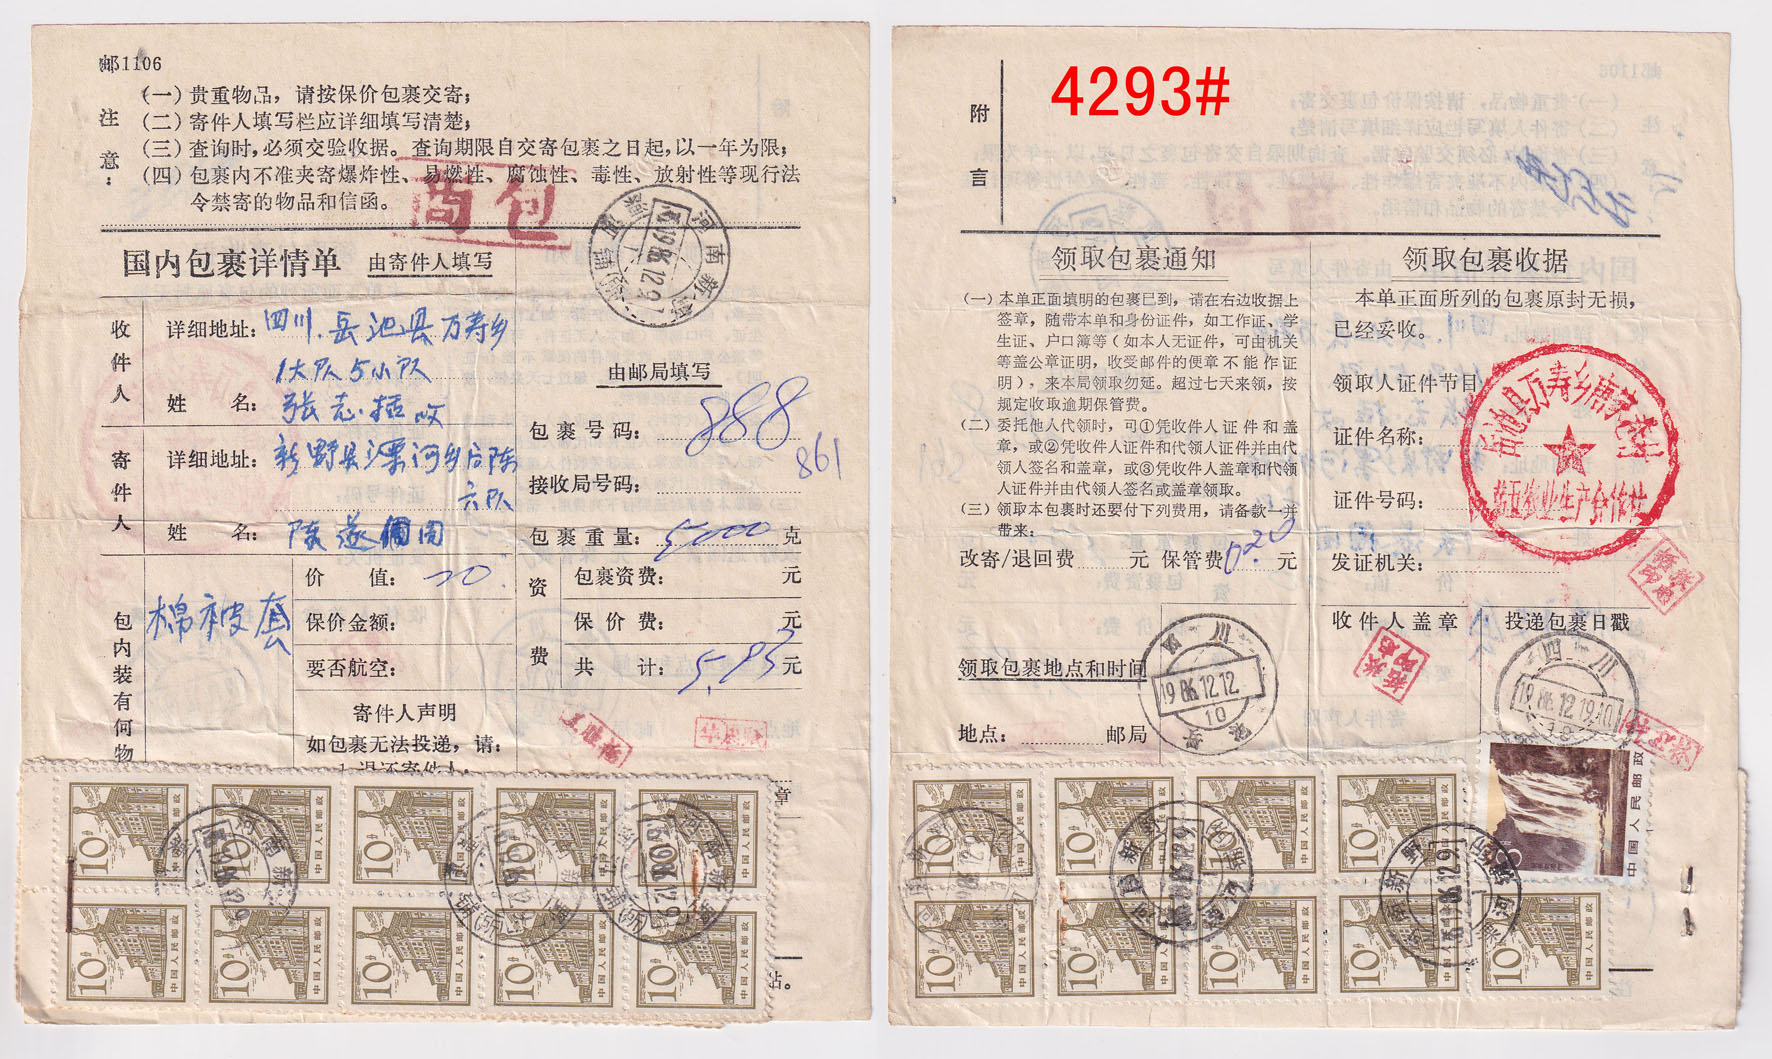 邮1106
注意：
(一) 贵重物品，请按保价包裹交寄；
(二) 寄件人填写栏应详细填写清楚；
(三) 查询时，必须交验收据。查询期限自交寄包裹之日起，以一年为限；
(四) 包裹内不准夹寄爆炸性、易燃性、腐蚀性、毒性、放射性等现行法
令禁寄的物品和信函。
商包
河南新野
1986.12.9
国内包裹详情单 由寄件人填写
收件人
详细地址：四川.岳池县万寿乡
1大队5小队
姓 名：张志 收
寄件人
详细地址：新野县溧河乡后陈
六队
姓 名：陈遂
由邮局填写
包裹号码：888
861
接收局号码：
包裹重量：5000克
包内装有何物
棉被套
价 值：20.
保价金额：
要否航空：
资费
包裹资费： 元
保 价 费： 元
共 计：5.93元
寄件人声明
如包裹无法投递，请：
1.退还寄件人：
章
10分 中国人民邮政
10分 中国人民邮政
10分 中国人民邮政
10分 中国人民邮政
10分 中国人民邮政
10 中国人民邮政
10 中国人民邮政
10 中国人民邮政
10 中国人民邮政
10 中国人民邮政
附言
4293#
领取包裹通知
(一) 本单正面填明的包裹已到，请在右边收据上
签章，随带本单和身份证件，如工作证、学
生证、户口簿等（如本人无证件，可由机关
等盖公章证明，收受邮件的便章不能作证
明），来本局领取勿延。超过七天来领，按
规定收取逾期保管费。
(二) 委托他人代领时，可①凭收件人证件和盖
章，或②凭收件人证件和代领人证件并由代
领人签名和盖章，或③凭收件人盖章和代领
人证件并由代领人签名或盖章领取。
(三) 领取本包裹时还要付下列费用，请备款一并
带来：
改寄/退回费 元 保管费0.20元
领取包裹地点和时间
地点： 邮局
四川
1986.12.12.
10
岳池
领取包裹收据
本单正面所列的包裹原封无损，
已经妥收。
领取人证件节目
证件名称：
证件号码：
发证机关：
岳池县万寿乡唐家村
第五农业生产合作社
收件人盖章
投递包裹日戳
四川
1986.12.19.10
中国人民邮政
8
10分
10分
10分
10分
10
10
10
10
10